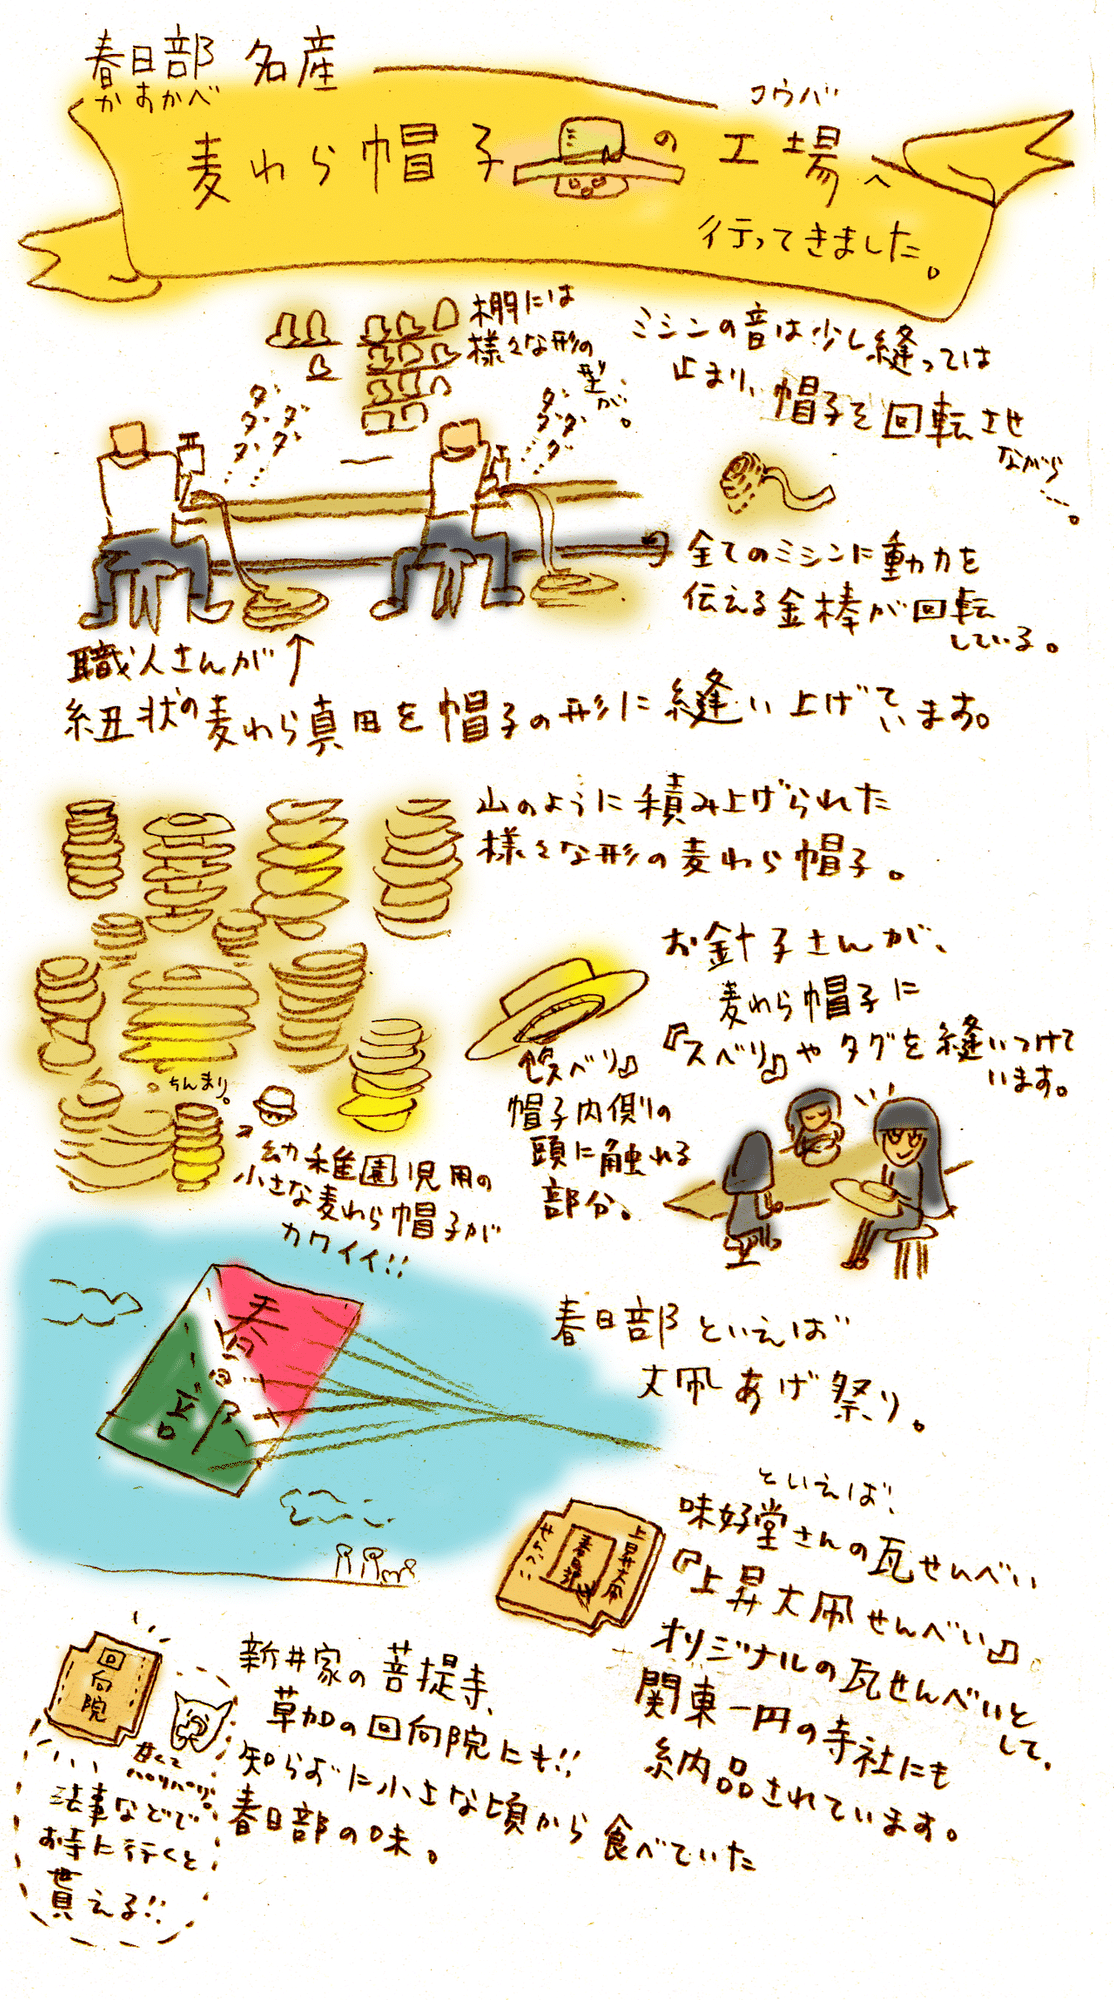 春日部 名産
かすかべ
麦わら帽子の工場へ
コウバ
行ってきました。
棚には
様々な形の
型が。
ミシンの音は少し縫っては
止まり、帽子を回転させ
ながら…。
ダダダ…
ダダダダ…
全てのミシンに動力を
伝える金棒が回転
している。
職人さんが↑
紐状の麦わら真田を帽子の形に縫い上げて
います。
山のように積み上げられた
様々な形の麦わら帽子。
お針子さんが、
麦わら帽子に
『スベリ』やタグを縫いつけて
います。
『スベリ』
帽子内側の
頭に触れる
部分。
ちんまり。
幼稚園児用の
小さな麦わら帽子が
カワイイ!!
春日部
春日部といえば
大凧あげ祭り。
といえば、
味好堂さんの瓦せんべい
『上昇大凧せんべい』
上昇大凧
春日部
せんべい
オリジナルの瓦せんべいと
して、
関東一円の寺社にも
納品されています。
回向院
新井家の菩提寺、
草加の回向院にも!!
知らずに小さな頃から食べていた
春日部の味。
甘くて
パリパリ。
法事などで
お寺に行くと
貰える!!